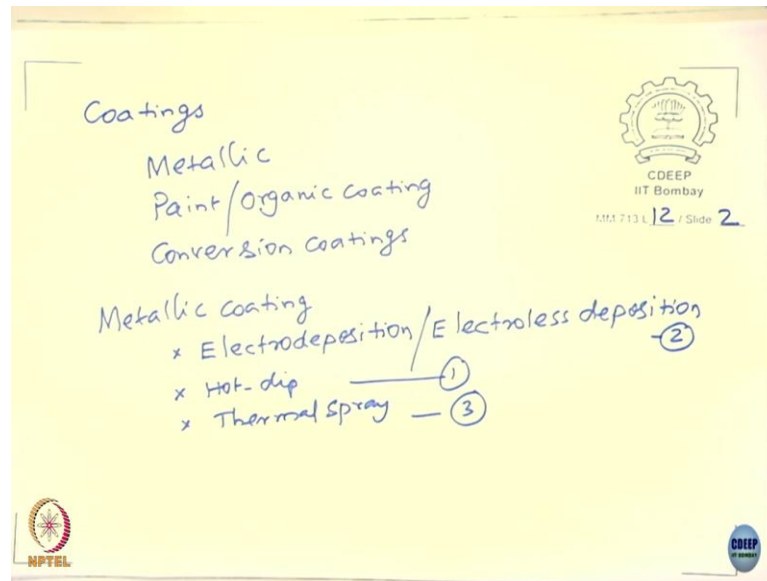 Coatings
Metallic
Paint/Organic coating
Conversion coatings
CDEEP
IIT Bombay
MM 713 L 12 / Slide 2
Metallic coating
x Electrodeposition/Electroless deposition - ②
x Hot-dip — ①
x Thermal spray — ③
NPTEL
CDEEP
IIT BOMBAY